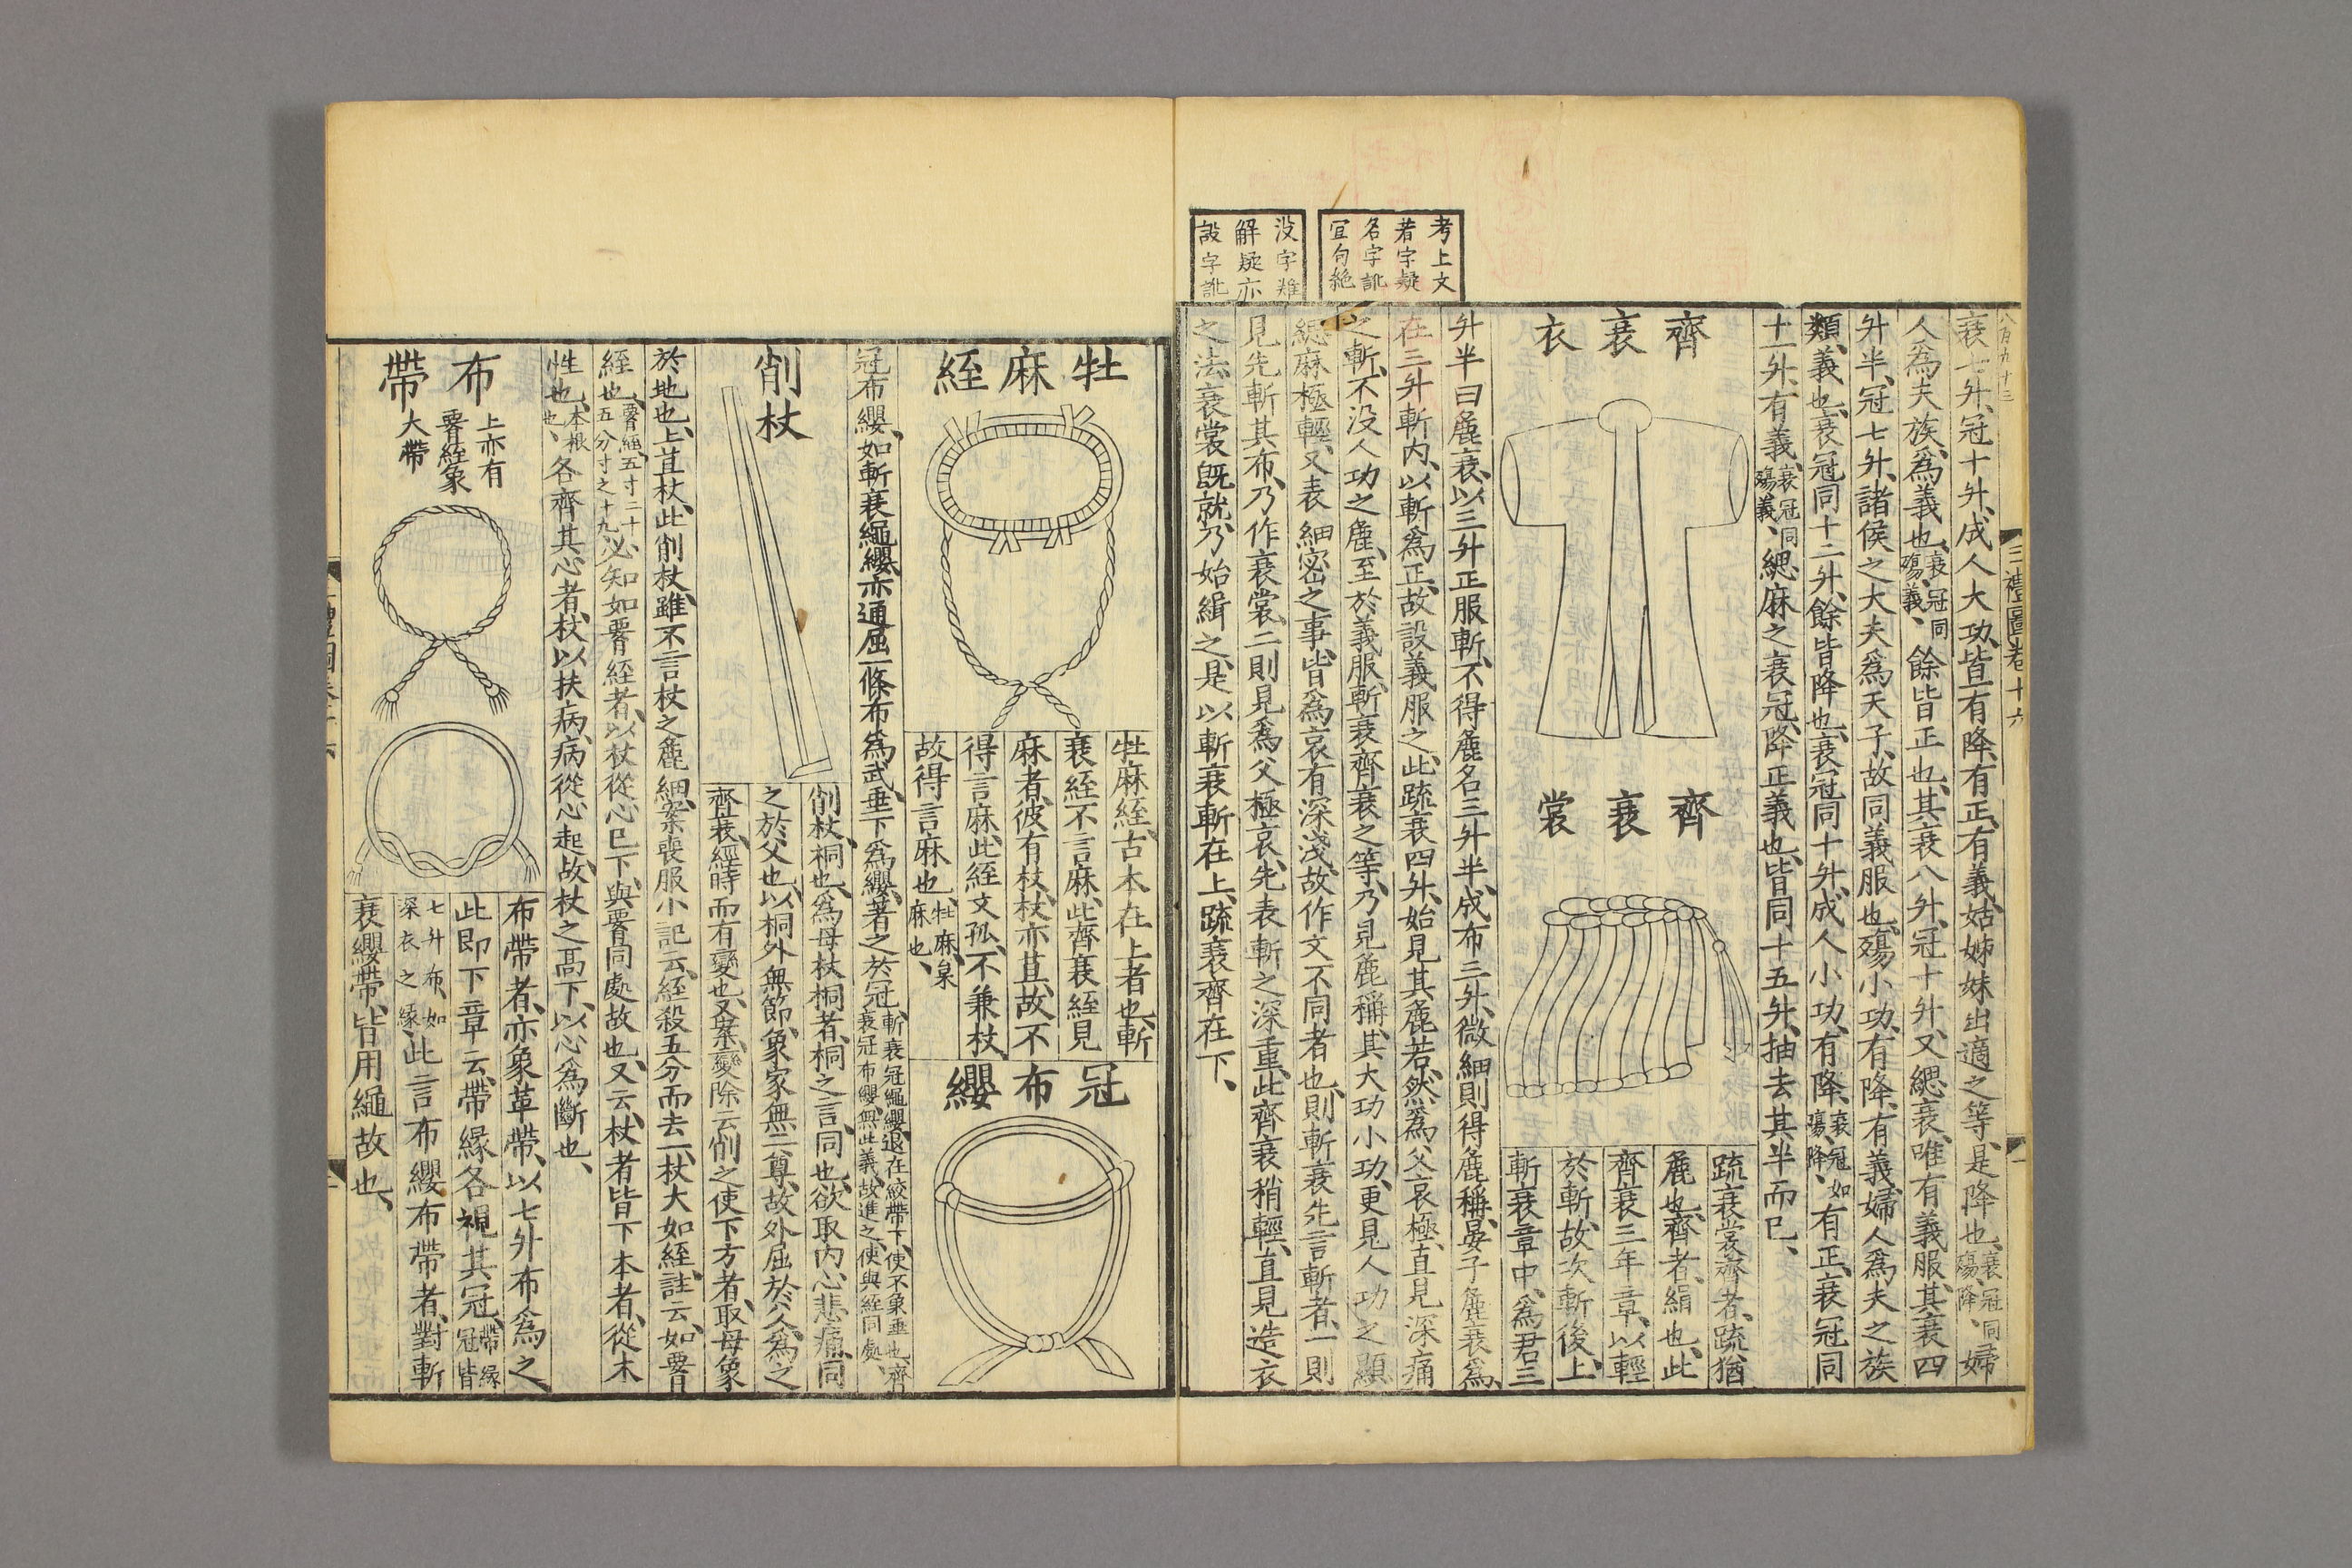 三禮圖卷十六
考上文
若字疑
名字訛
宜句絶
没字難
解疑亦
設字訛
衰七升、冠十升、成人大功、皆有降、有正、有義、姑姊妹出適之等、是降也、衰冠同殤降、婦
人為夫族、為義也、衰冠同殤義、餘皆正也、其衰八升、冠十升、又緦衰、唯有義服、其衰四
升半、冠七升、諸侯之大夫為天子、故同義服也、殤小功、有降、有義、婦人為夫之族
類、義也、衰冠同十二升、餘皆降也、衰冠同十升、成人小功、有降、衰冠如殤降、有正、衰冠同
十一升、有義、衰冠同殤義、緦麻之衰冠、降正義也、皆同十五升、抽去其半而已、
齊衰衣
齊衰裳
疏衰裳齊者、疏、猶
麁也、齊者、緝也、此
齊衰三年章、以輕
於斬、故次斬後、上
斬衰章中、為君三
升半曰麁衰、以三升正服斬、不得麁名、三升半、成布三升、微細則得麁稱、晏子麁衰為
在三升斬内、以斬為正、故設義服之、此疏衰四升、始見其麁、若然、為父哀極、直見深痛
之斬、不没人功之麁、至於義服斬衰齊衰之等、乃見麁稱、其大功小功、更見人功之顯
緦麻極輕、又表細密之事、皆為哀有深淺、故作文不同者也、則斬衰先言斬者、一則
見先斬其布、乃作衰裳、二則見為父極哀、先表斬之深重、此齊衰稍輕、直見造衣
之法、衰裳既就、乃始緝之、是以斬衰斬在上、疏衰齊在下、
牡麻絰
牡麻絰、古本在上者也、斬
衰絰不言麻、此齊衰絰見
麻者、彼有杖、杖亦苴、故不
得言麻、此絰文孤、不兼杖
故得言麻也、牡麻枲麻也、
冠布纓
冠布纓、如斬衰繩纓、亦通屈一條布為武、垂下為纓、著之於冠、斬衰冠繩纓退在絞帶下、使不象垂也、齊衰冠布纓、無此義、故進之、使與絰同處、
削杖
削杖、桐也、為母杖桐者、桐之言、同也、欲取内心悲痛、同
之於父也、以桐外無節、象家無二尊、故外屈於父、為之
齊衰、經時而有變也、又案變除云、削之使下方者、取母象
於地也、上苴杖、此削杖、雖不言杖之麁細、案喪服小記云、絰殺五分而去一、杖大如絰、註云、如要
絰也、要絰五寸二十五分寸之十九、必知如要絰者、以杖從心已下、與要同處故也、又云、杖者皆下本者、從木
性也、本根也、各齊其心者、杖以扶病、病從心起、故杖之高下、以心為斷也、
布帶
上亦有
要絰象
大帶
布帶者、亦象革帶、以七升布為之、
此即下章云、帶緣各視其冠、帶緣冠皆
七升布、如深衣之緣、此言布纓布帶者、對斬
衰纓帶、皆用繩故也、